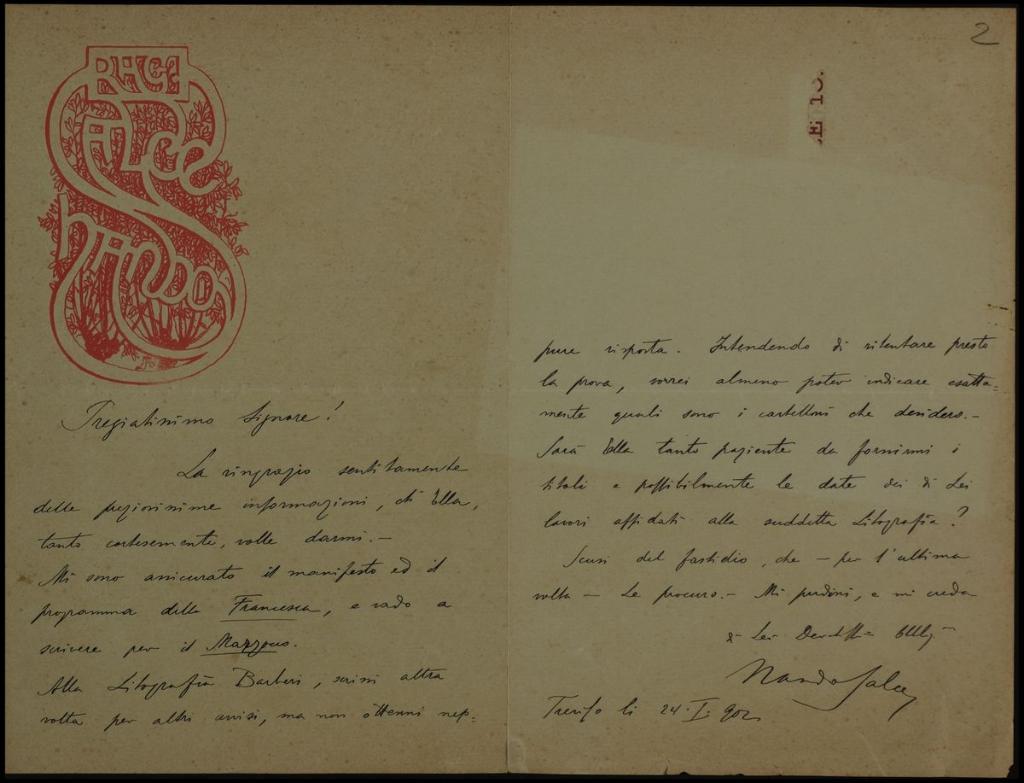 RAG.
SALCE
NANDO
Pregiatissimo Signore!
La ringrazio sentitamente
delle preziosissime informazioni, ch'Ella,
tanto cortesemente, volle darmi.-
Mi sono assicurato il manifesto ed il
programma della Francesca, e vado a
scrivere per il
Alla Litografia Barberi, scrissi altra
volta per altri avvisi, ma non ottenni nep=
pure risposta. Intendendo di ritentare presto
la prova, vorrei almeno poter indicare esatta=
mente quali sono i cartelloni che desidero.-
Sarà Ella tanto paziente da fornirmi i
titoli e possibilmente le date dei di Lei
lavori affidati alla suddetta Litografia?
Scusi del fastidio, che - per l'ultima
volta - Le procuro.- Mi perdoni, e mi creda
di Lei
Nando Salce
Treviso li 24.I.902
2
E 15.